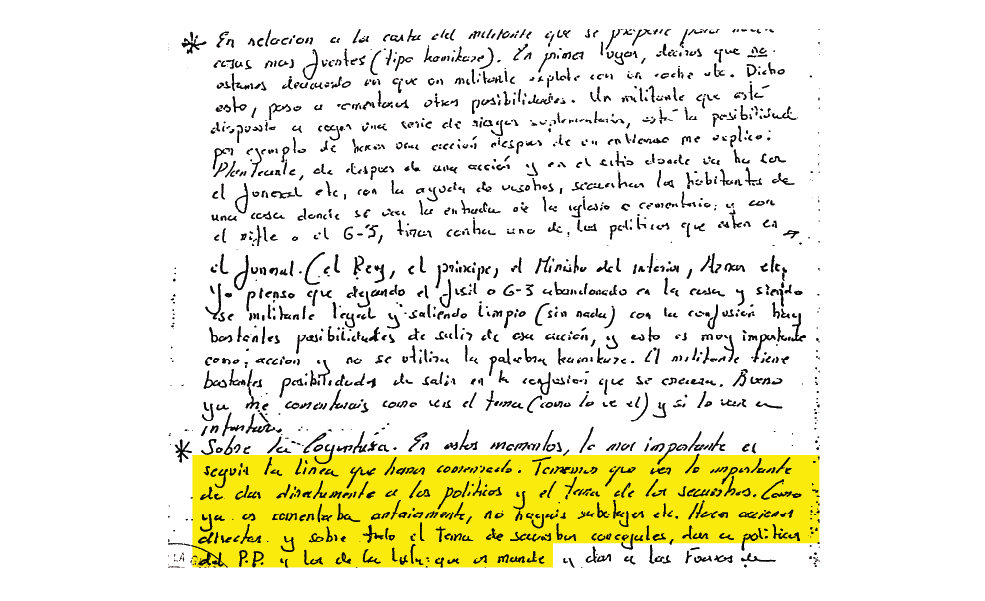 * En relacion a la carta del militante que se propone para hacer
cosas mas fuertes (tipo kamikaze). En primer lugar, deciros que no
estamos deacuerdo en que un militante explote con un coche etc. Dicho
esto, paso a comentaros otras posibilidades. Un militante que está
dispuesto a coger una serie de riesgos suplementarios, está la posibilidad
por ejemplo de hacer una acción despues de un entierro me explico:
Plantearle, de despues de una acción y en el sitio donde va ha ser
el funeral etc, con la ayuda de vosotros, secuestrar los habitantes de
una casa donde se vea la entrada de la iglesia o cementerio; y con
el rifle o el G-3, tirar contra uno de los politicos que esten en
el funeral. (el Rey, el principe, el Ministro del interior, Aznar etc,
Yo pienso que dejando el fusil o G-3 abandonado en la casa y siendo
ese militante legal y saliendo limpio (sin nada) con la confusión hay
bastantes posibilidades de salir de esa acción, y esto es muy importante
como acción y no se utiliza la palabra kamikaze. El militante tiene
bastantes posibilidades de salir en la confusión que se creara. Bueno
ya me comentarais como veis el tema (como lo ve el) y si lo veis en
intentar.
* Sobre la Coyuntura. En estos momentos, lo mas importante es
seguir la linea que hemos comenzado. Tenemos que ver lo importante
de dar directamente a los politicos y el tema de los secuestros. Como
ya os comentaba anteriormente, no hagais sabotajes etc. Hacer acciones
directas y sobre todo el tema de secuestrar concejales, dar a politicos
del P.P. y los de la lista que os mande y dar a las Fuerzas de
LA